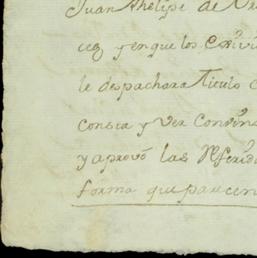 Juan Phelipe de
cez y en que los
le despachara Titulo
consta y ver
y aprovó las Referid
forma que parecen